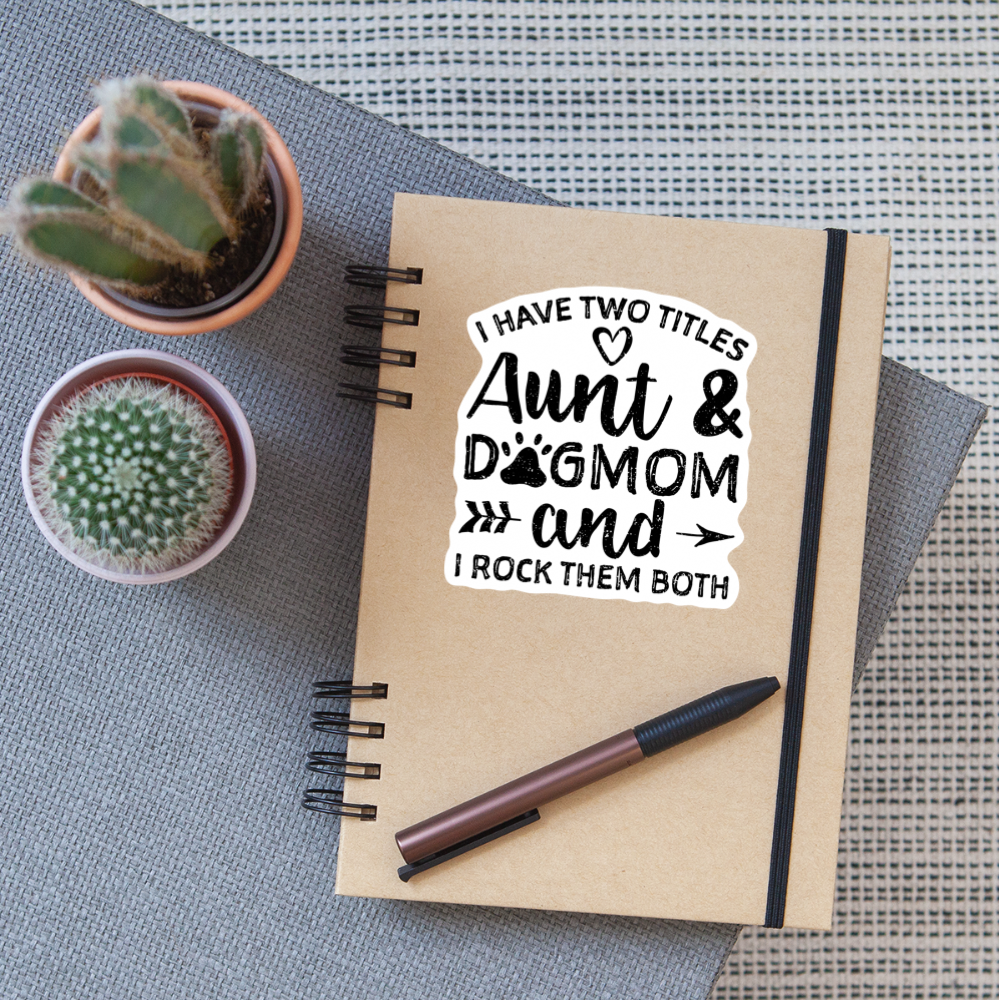 I HAVE TWO TITLES
Aunt &
DOGMOM
and
I ROCK THEM BOTH